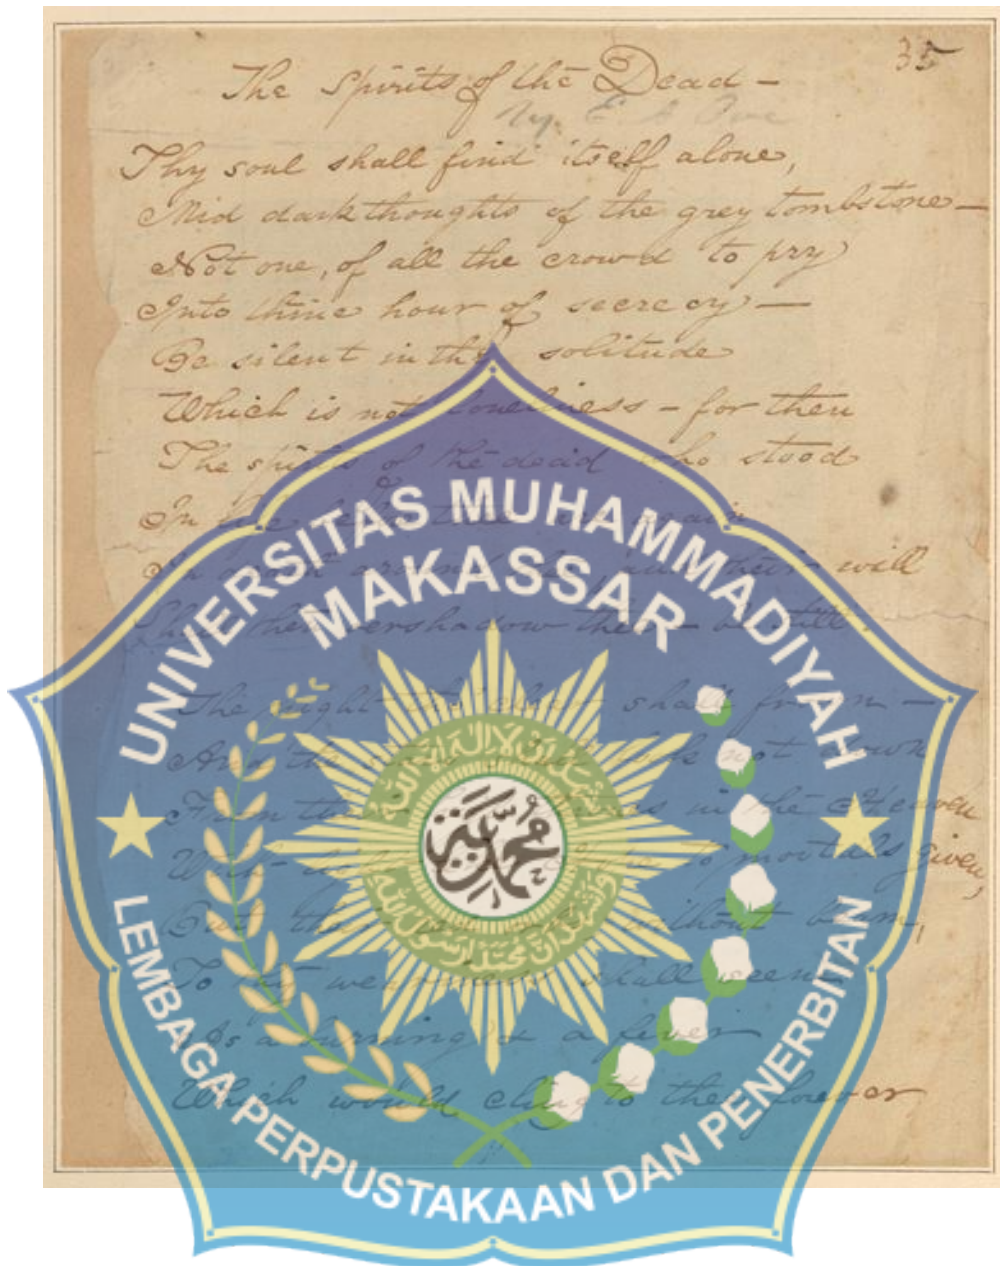 35
The Spirits of the Dead -
By E A Poe
Thy soul shall find itself alone,
Mid dark thoughts of the grey tombstone —
Not one, of all the crowd to pry
Into thine hour of secrecy —
Be silent in solitude
Which is not loneliness - for then
The spirits of the dead who stood
In
their will
overshadow thee - be still,
The night shall frown -
And the not down
From in the Heaven
With to mortals given,
But without beam,
To shall seem
As a burning & a fever
Which would cling to thee forever
UNIVERSITAS MUHAMMADIYAH
MAKASSAR
أشهد أن لا إله إلا الله
محمدية
وأشهد أن محمدا رسول الله
LEMBAGA PERPUSTAKAAN DAN PENERBITAN